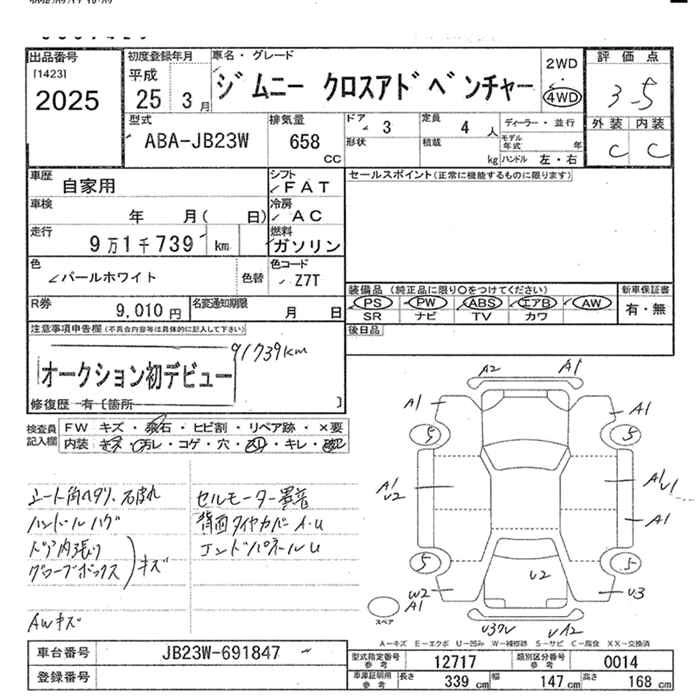 出品番号
[1423]
2025
初度登録年月
平成
25年 3月
車名・グレード
ジムニー クロスアドベンチャー
2WD
4WD
評価点
3.5
外装 内装
C C
型式
ABA-JB23W
排気量
658
CC
ドア 3
形状
定員 4 人
積載 kg
ディーラー・並行
モデル年式 年
ハンドル 左・右
車歴
自家用
シフト
FAT
セールスポイント(正常に機能するものに限ります)
車検
年 月( 日)
冷房
AC
走行
9万1千739 km
燃料
ガソリン
色
パールホワイト
色替
色コード
Z7T
装備品(純正品に限り〇をつけてください)
PS PW ABS エアB AW
SR ナビ TV カワ
新車保証書
有・無
R券
9,010円
名変通知期限
月 日
後日品
注意事項申告欄(不具合内容等は具体的に記入して下さい)
91739km
オークション初デビュー
修復歴 有〔箇所 〕
検査員記入欄
FW キズ・飛石・ヒビ割・リペア跡・×要
内装 キズ・汚レ・コゲ・穴・スリ・キレ
シート角ヘタリ、右皮れ
ハンドルハゲ
ドア内張り
グローブボックス
キズ
AWキズ
セルモーター異音
背面タイヤカバーA・U
エンドパネルU
A2 A1
A1 A1
5 5
A1
U2
A1 U1
A1
5 5
U2
W2 U3
A1
スペア
A-キズ E-エクボ U-凹み W-補修跡 S-サビ C-腐食 XX-交換済
車台番号
JB23W-691847
登録番号
型式指定番号
参考
12717
類別区分番号
参考
0014
車庫証明用
参考
長さ 339 cm
幅 147 cm
高さ 168 cm